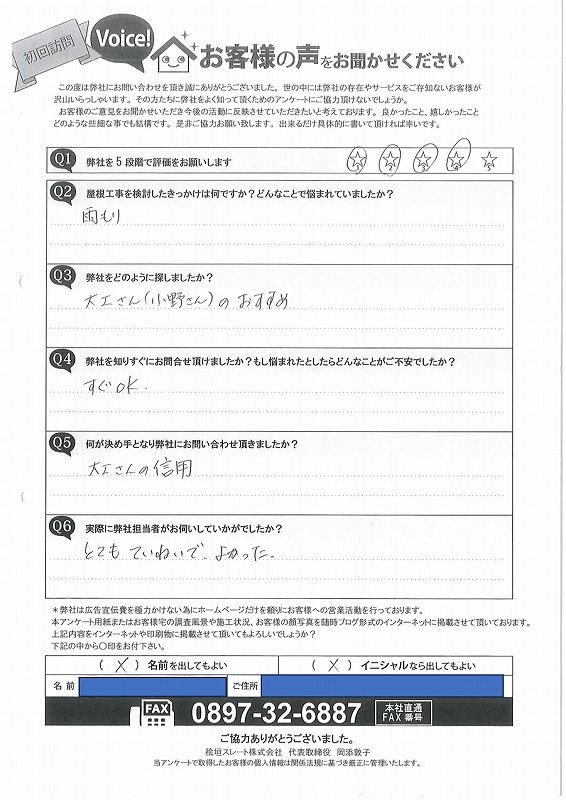 初回訪問
Voice!
お客様の声をお聞かせください
この度は弊社にお問い合わせを頂き誠にありがとうございました。世の中には弊社の存在やサービスをご存知ないお客様が
沢山いらっしゃいます。その方たちに弊社をよく知って頂くためのアンケートにご協力頂けないでしょうか。
お客様のご意見をお聞かせいただき今後の活動に反映させていただきたいと考えております。良かったこと、嬉しかったこと
どのような些細な事でも結構です。是非ご協力お願い致します。出来るだけ具体的に書いて頂ければ幸いです。
Q1 弊社を5段階で評価をお願いします ☆1 ☆2 ☆3 ☆4 ☆5
Q2 屋根工事を検討したきっかけは何ですか？どんなことで悩まれていましたか？
雨もり
Q3 弊社をどのように探しましたか？
大工さん(小野さん)のおすすめ
Q4 弊社を知りすぐにお問合せ頂けましたか？もし悩まれたとしたらどんなことがご不安でしたか？
すぐOK.
Q5 何が決め手となり弊社にお問い合わせ頂きましたか？
大工さんの信用
Q6 実際に弊社担当者がお伺いしていかがでしたか？
とてもていねいで、よかった。
＊弊社は広告宣伝費を極力かけない為にホームページだけを頼りにお客様への営業活動を行っております。
本アンケート用紙またはお客様宅の調査風景や施工状況、お客様の顔写真を随時ブログ形式のインターネットに掲載させて頂いております。
上記内容をインターネットや印刷物に掲載させて頂いてもよろしいでしょうか？
下記の中から〇印をお付下さい。
( × ) 名前を出してもよい ( × ) イニシャルなら出してもよい
名前 ご住所
FAX 0897-32-6887 本社直通
FAX番号
ご協力ありがとうございました。
桧垣スレート株式会社 代表取締役 岡添敦子
当アンケートで取得したお客様の個人情報は関係法規に基づき厳正に管理いたします。